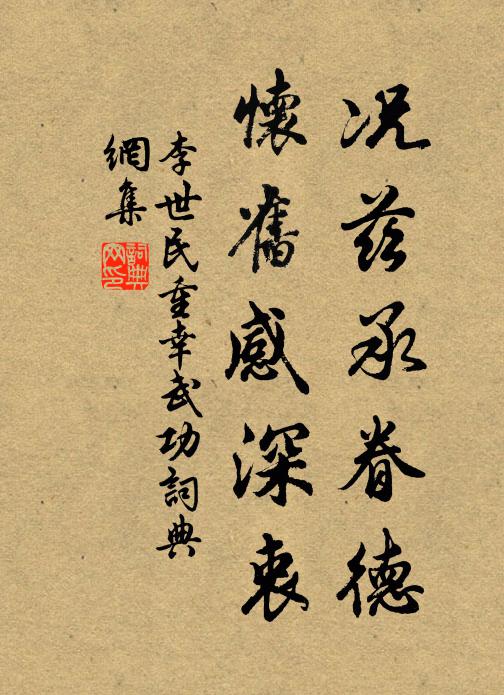 况茲承眷德
懷舊感深衷
李世民重幸武功詞典
網集
詞典
网印